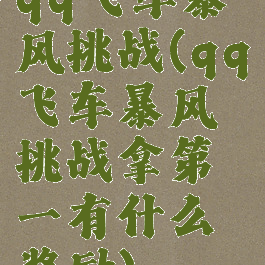 qq飞车暴
风挑战(qq
飞车暴风
挑战拿第
一有什么
奖励)